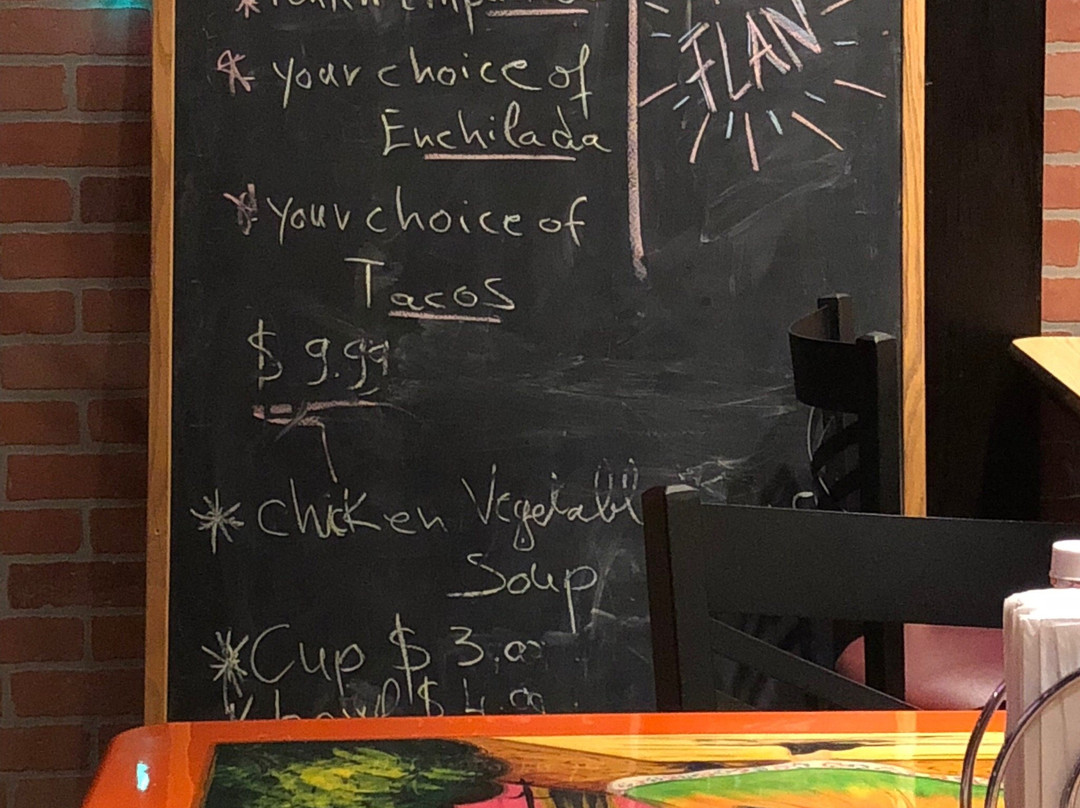 * your choice of
Enchilada
* your choice of
Tacos
$ 9.99
* Chicken Vegetabl
Soup
* Cup $ 3.00
bowl $ 4.00
FLAN